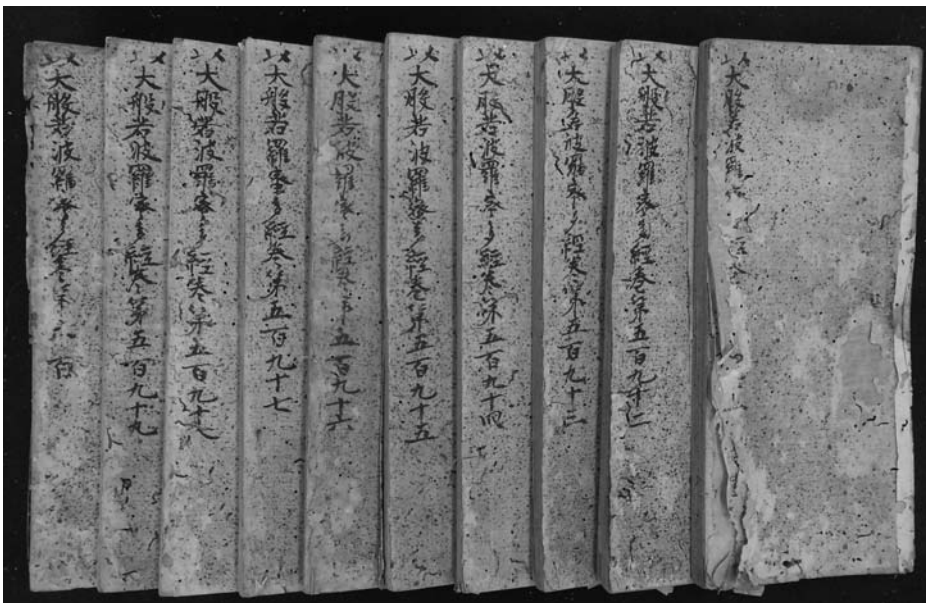 大般若波羅
大般若波羅蜜多經卷第五百九十二
大般若波羅蜜多經卷第五百九十三
大般若波羅蜜多經卷第五百九十四
大般若波羅蜜多經卷第五百九十五
大般若波羅蜜多經卷第五百九十六
大般若羅蜜多經卷第五百九十七
大般若波羅蜜多經卷第五百九十八
大般若波羅蜜多經卷第五百九十九
大般若波羅蜜多經卷第六百